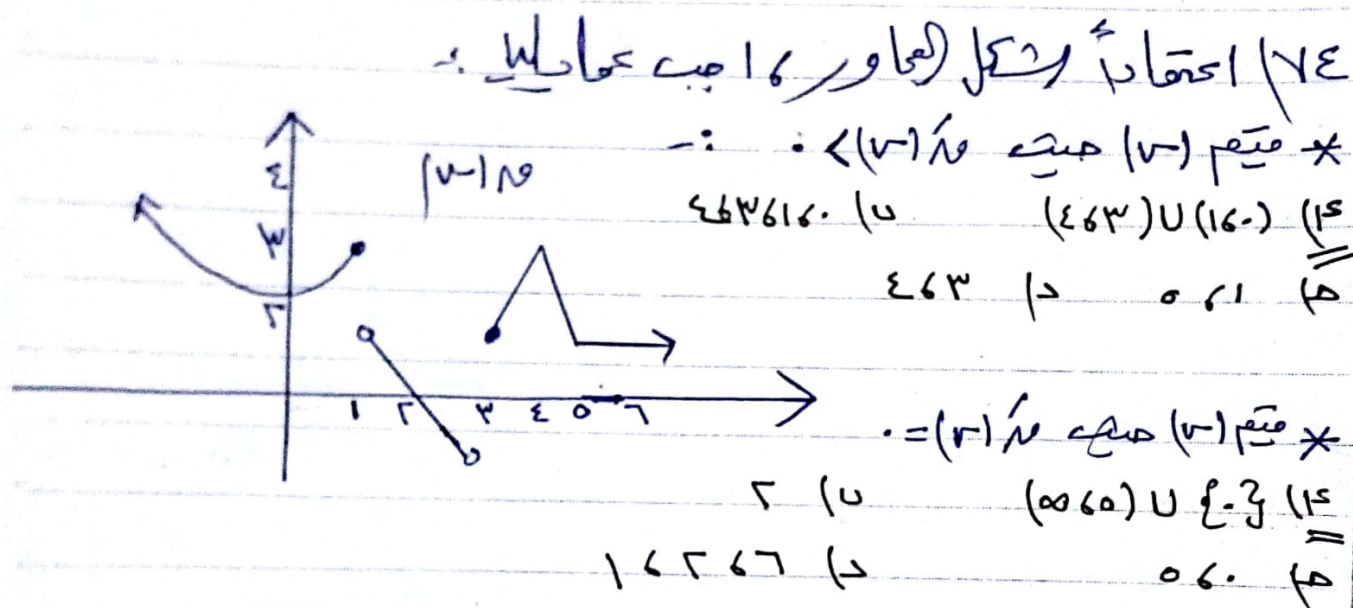 ٧٤) اعتماداً الشكل المجاور ، اجب عما يليا :-
* قيم (س) حيث قَ(س) > ٠ :-
أ) (٠،١) ∪ (٣،٤) ب) ٠،١،٣،٤
ج) ١،٥ د) ٣،٤
* قيم (س) حيث قَ(س) = ٠
أ) {٠} ∪ (٥،∞) ب) ٢
ج) ٠،٥ د) ٦،٢،١
ق(س)
٤
٣
٢
١ ٢ ٣ ٤ ٥ ٦